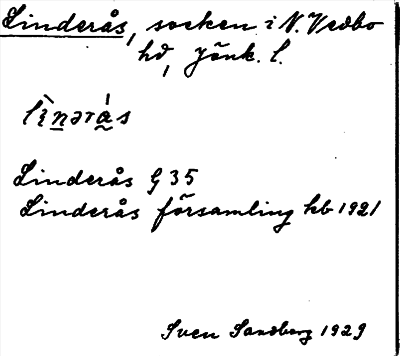 Linderås, socken i N. Vedbo
hd, Jönk. l.
lìnərás
Linderås G 35
Linderås församling kb 1921
Sven Sandberg 1929